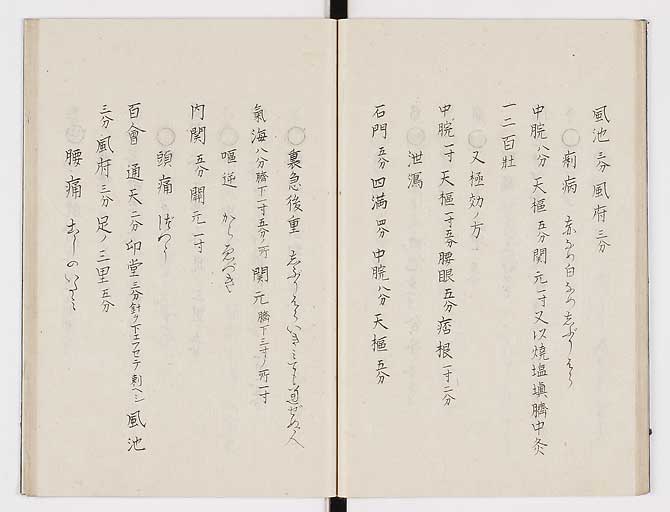 風池 三分 風府 三分
○痢病 赤なめ白なめ志ぶりはら
中脘 八分 天樞 五分 関元 一寸 又以燒塩塡臍中灸
一二百壯
○又極効ノ方
中脘 一寸 天樞 一寸五分 腰眼 五分 痞根 一寸二分
○泄瀉
石門 五分 四満 四分 中脘 八分 天樞 五分
○裏急後重 志ぶりはら
氣海 八分臍下一寸五分ノ所 関元 臍下三寸ノ所一寸
○嘔逆 からゑづき
内関 五分 関元 一寸
○頭痛
百會 通天 二分 印堂 三分針ヲ下エフセテ刺ヘシ 風池
三分 風府 三分 足ノ三里 五分
○腰痛 こしのいたミ